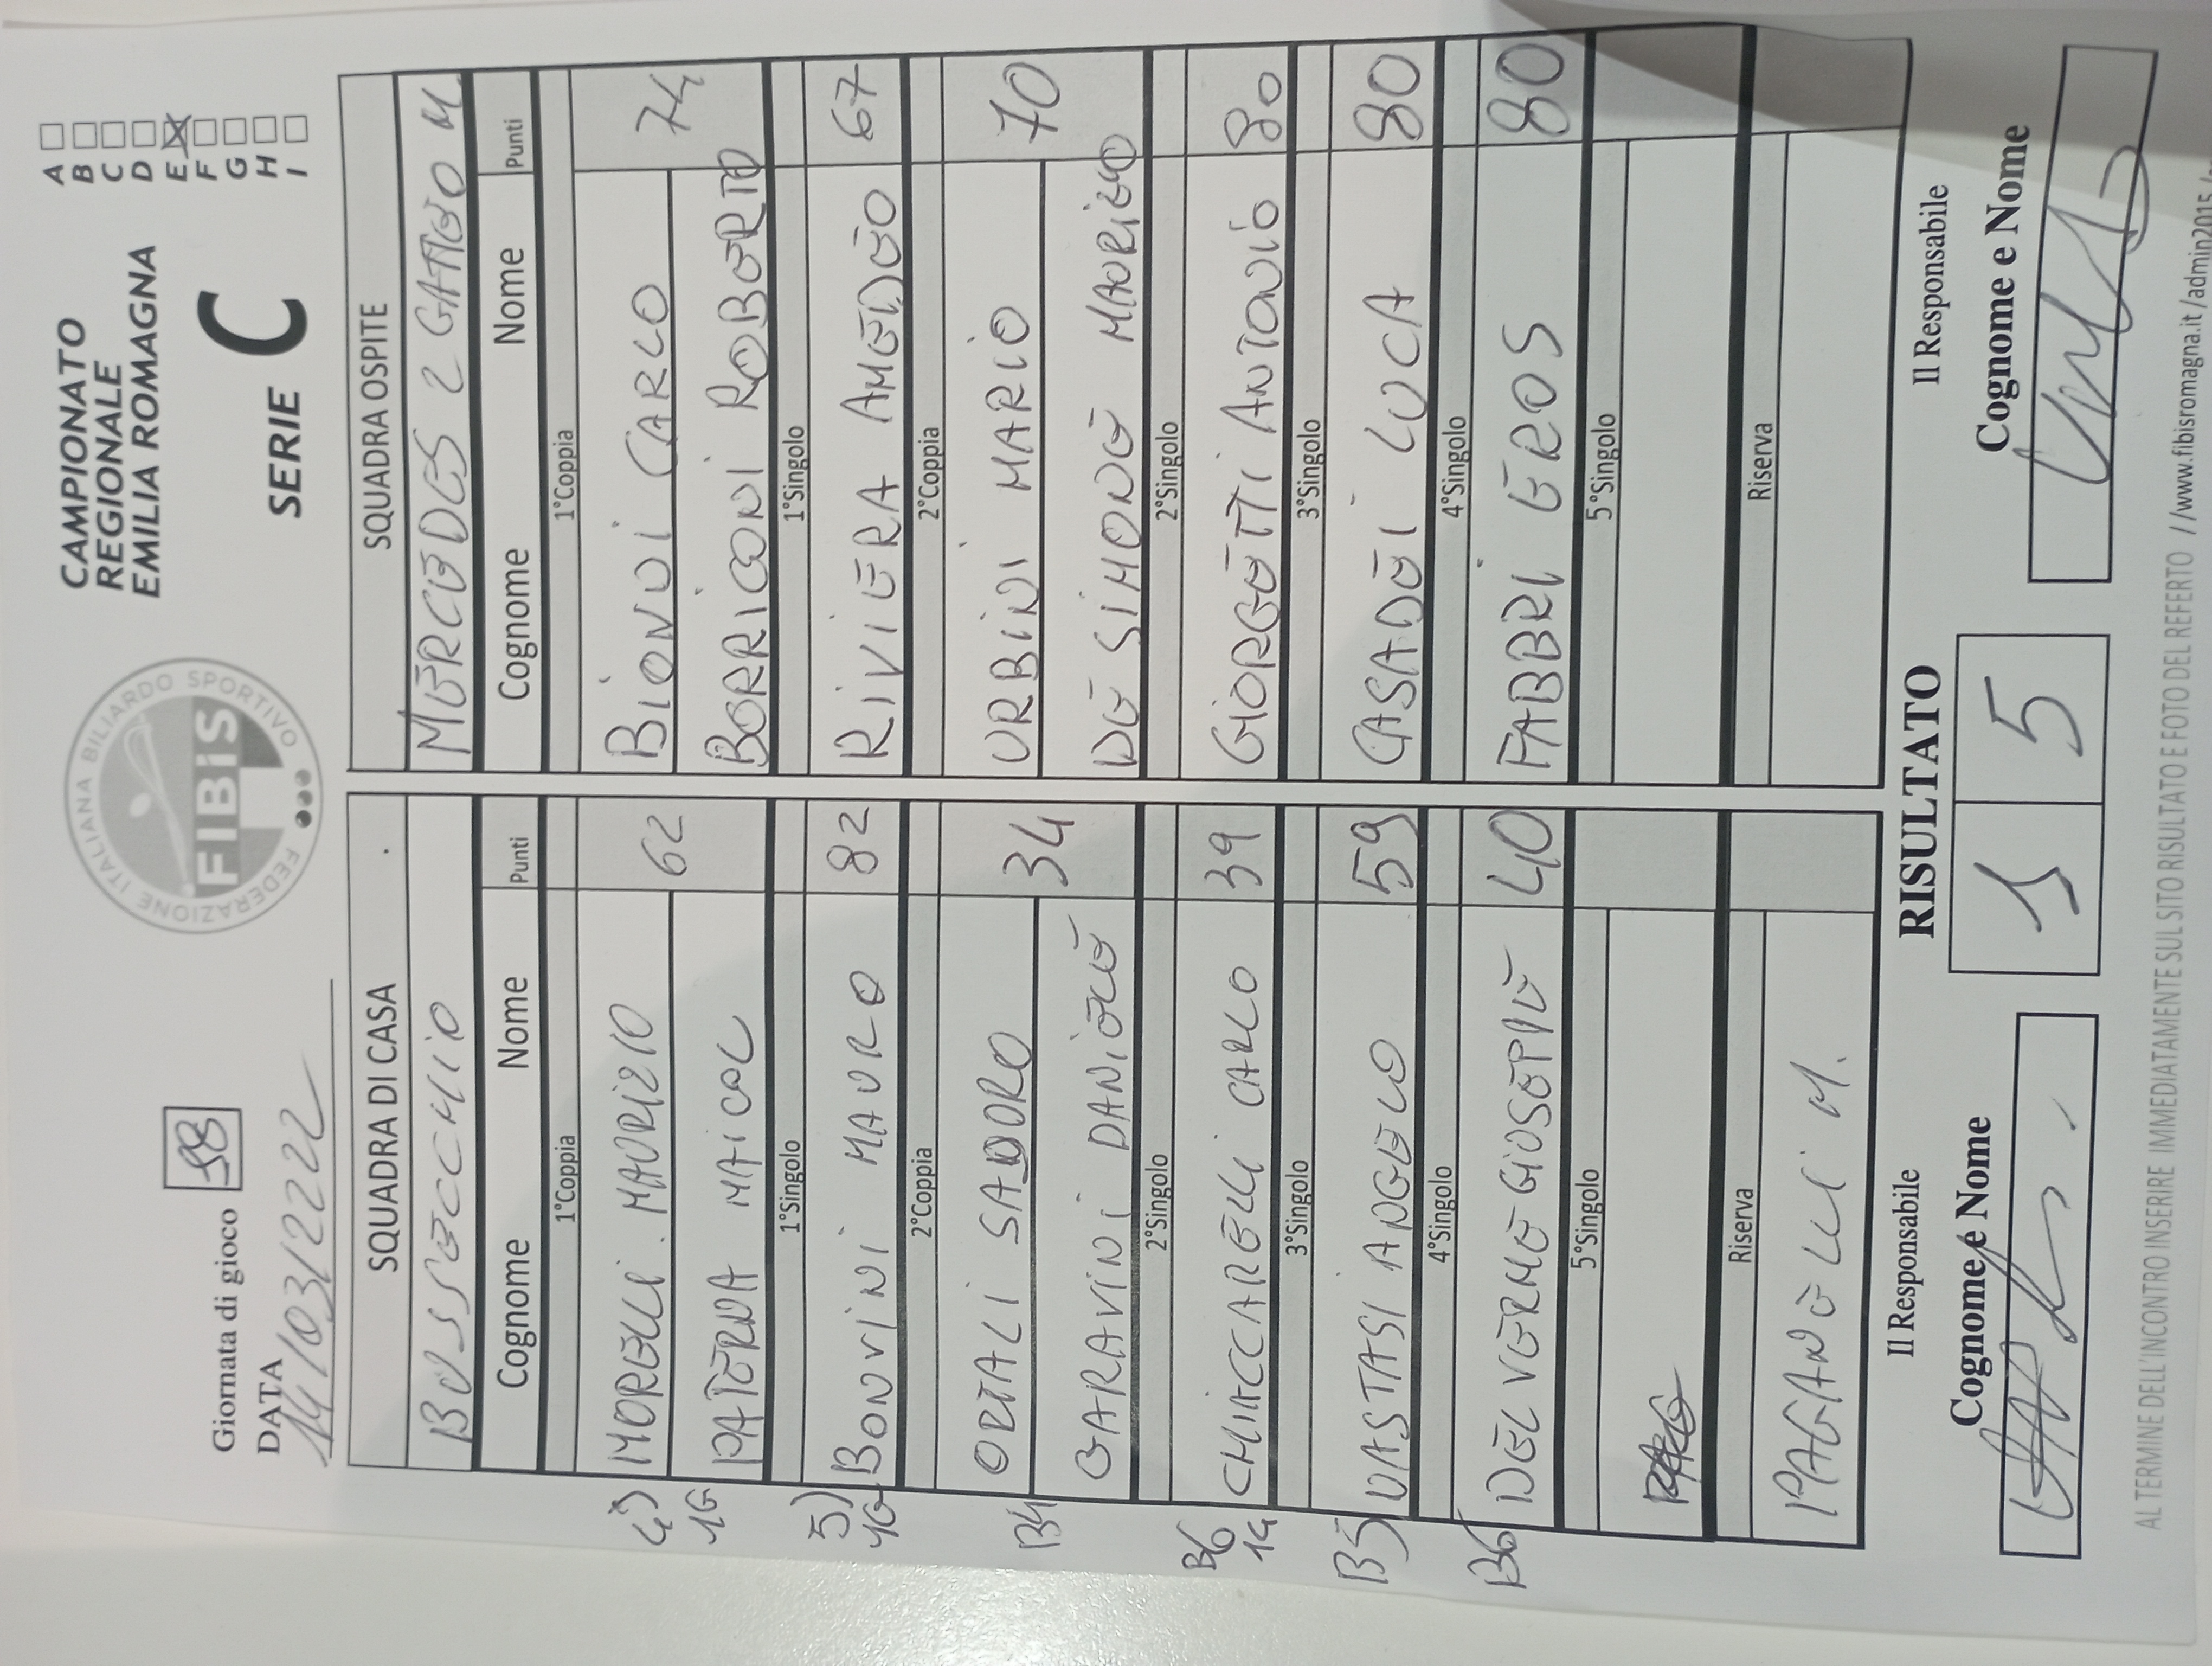 CAMPIONATO
REGIONALE
EMILIA ROMAGNA
SERIE C
A
B
C
D
E
F
G
H
I
FEDERAZIONE ITALIANA BILIARDO SPORTIVO
FIBiS
Giornata di gioco
DATA
14/03/2222
SQUADRA DI CASA
BUSSECCHIO
Cognome Nome Punti
1°Coppia
4) MORELLI MAURIZIO 62
1G PATERNA MAICOL
1°Singolo
5) 1G BONVINI MAURO 82
2°Coppia
B4 ORTALI SANDRO 34
GARAVINI DANIELE
2°Singolo
B6 1G CHIACCARELLI CARLO 39
3°Singolo
B5 NASTASI ANGELO 59
4°Singolo
B6 DEL VERME GIUSEPPE 40
5°Singolo
Riserva
PAGANELLI M.
SQUADRA OSPITE
MERCEDES 2 GATTEO M
Cognome Nome Punti
1°Coppia
BIONDI CARLO 74
BORRIGONI ROBERTO
1°Singolo
RIVIERA AMEDEO 67
2°Coppia
URBINI MARIO 70
DE SIMONE MAURIZIO
2°Singolo
GIORGETTI ANTONIO 80
3°Singolo
CASADEI LUCA 80
4°Singolo
FABBRI EROS 80
5°Singolo
Riserva
Il Responsabile
Cognome e Nome
RISULTATO
1 5
Il Responsabile
Cognome e Nome
AL TERMINE DELL'INCONTRO INSERIRE IMMEDIATAMENTE SUL SITO RISULTATO E FOTO DEL REFERTO //www.fibisromagna.it/admin2015/